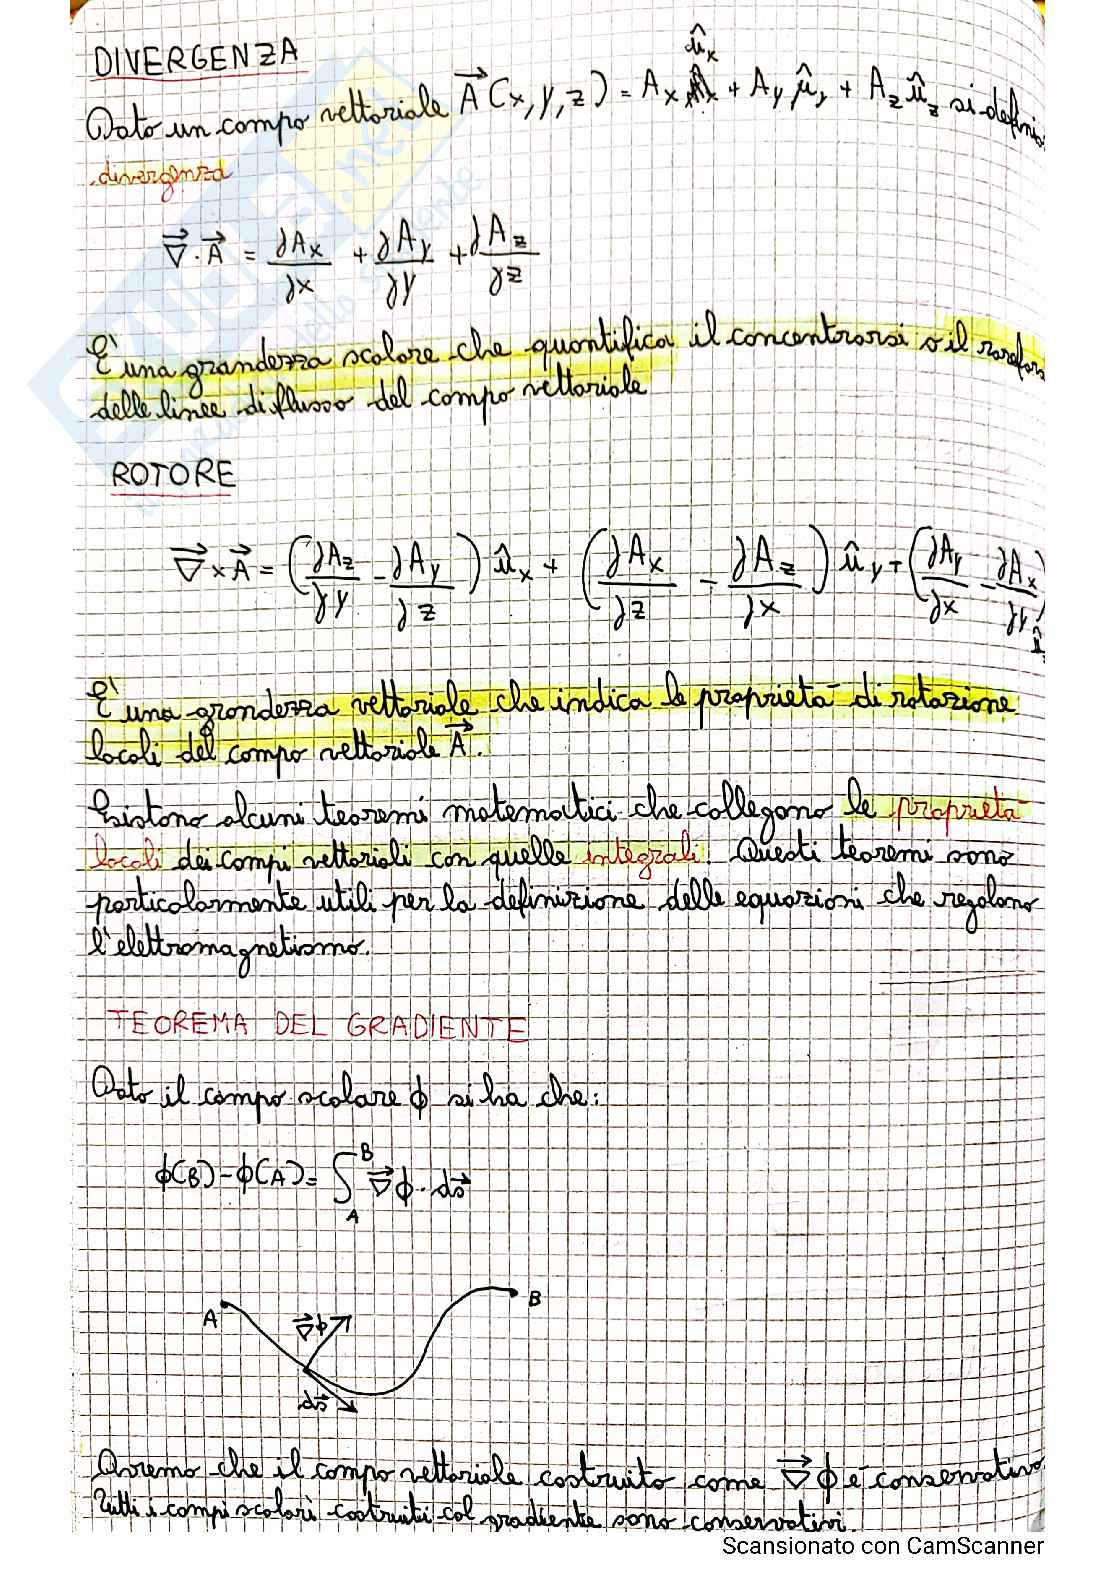 DIVERGENZA
Dato un campo vettoriale A⃗(x,y,z) = Ax ûx + Ay ûy + Az ûz si definis
divergenza
∇⃗·A⃗ = ∂Ax/∂x + ∂Ay/∂y + ∂Az/∂z
E' una grandezza scalare che quantifica il concentrarsi o il rarefars
delle linee di flusso del campo vettoriale
ROTORE
∇⃗×A⃗ = (∂Az/∂y - ∂Ay/∂z) ûx + (∂Ax/∂z - ∂Az/∂x) ûy + (∂Ay/∂x - ∂Ax/∂y)
E' una grandezza vettoriale che indica le proprietà di rotazione
locali del campo vettoriale A⃗.
Esistono alcuni teoremi matematici che collegano le proprietà
locali dei campi vettoriali con quelle integrali. Questi teoremi sono
particolarmente utili per la definizione delle equazioni che regolano
l'elettromagnetismo.
TEOREMA DEL GRADIENTE
Dato il campo scalare ϕ si ha che:
ϕ(B)-ϕ(A)= ∫_A^B ∇⃗ϕ · ds⃗
A
B
∇⃗ϕ
ds⃗
Avremo che il campo vettoriale costruito come ∇⃗ϕ è conservativo
Tutti i campi scalari costruiti col gradiente sono conservativi.
Scansionato con CamScanner